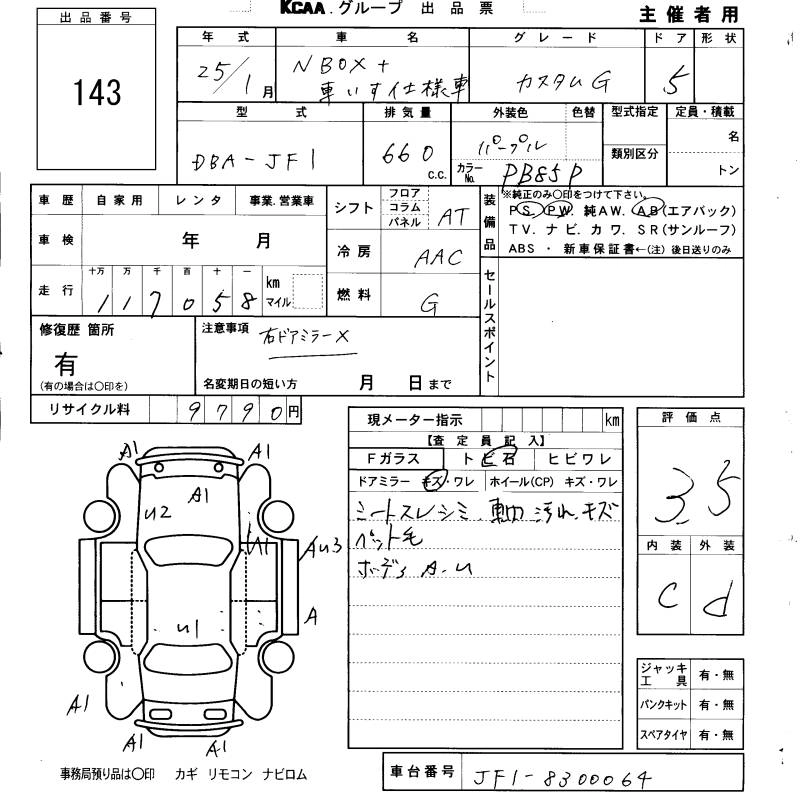 KCAA.グループ 出品票
主催者用
出品番号
143
年式 車名 グレード ドア 形状
25/1月 N BOX+ 車いす仕様車 カスタムG 5
型式 排気量 外装色 色替 型式指定 定員・積載
DBA-JF1 660 c.c. パープル 類別区分 名
カラーNo. PB85P トン
車歴 自家用 レンタ 事業.営業車
車検 年 月
走行 十万 万 千 百 十 一 km マイル
1 1 7 0 5 8
シフト フロア コラム パネル AT
冷房 AAC
燃料 G
装備品 ※純正のみ○印をつけて下さい。
PS. PW. 純AW. AB(エアバック)
TV. ナビ. カワ. SR(サンルーフ)
ABS ・ 新車保証書←(注) 後日送りのみ
セールスポイント
修復歴 箇所
有
(有の場合は○印を)
注意事項 右ドアミラーX
名変期日の短い方 月 日まで
リサイクル料 9790円
現メーター指示 km
【査定員記入】
Fガラス トビ石 ヒビワレ
ドアミラー キズ・ワレ ホイール(CP) キズ・ワレ
シートスレシミ. 車内汚れ.キズ
ペット毛
ボディ A.U
評価点
3.5
内装 外装
C d
A1 A1
A1
U2
U1 AU3
A
U1
A1 A1
A1 A1
ジャッキ工具 有・無
パンクキット 有・無
スペアタイヤ 有・無
事務局預り品は○印 カギ リモコン ナビロム
車台番号 JF1-8300064